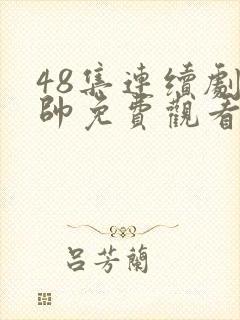 48集連續劇
帥免費觀看
呂芳蘭